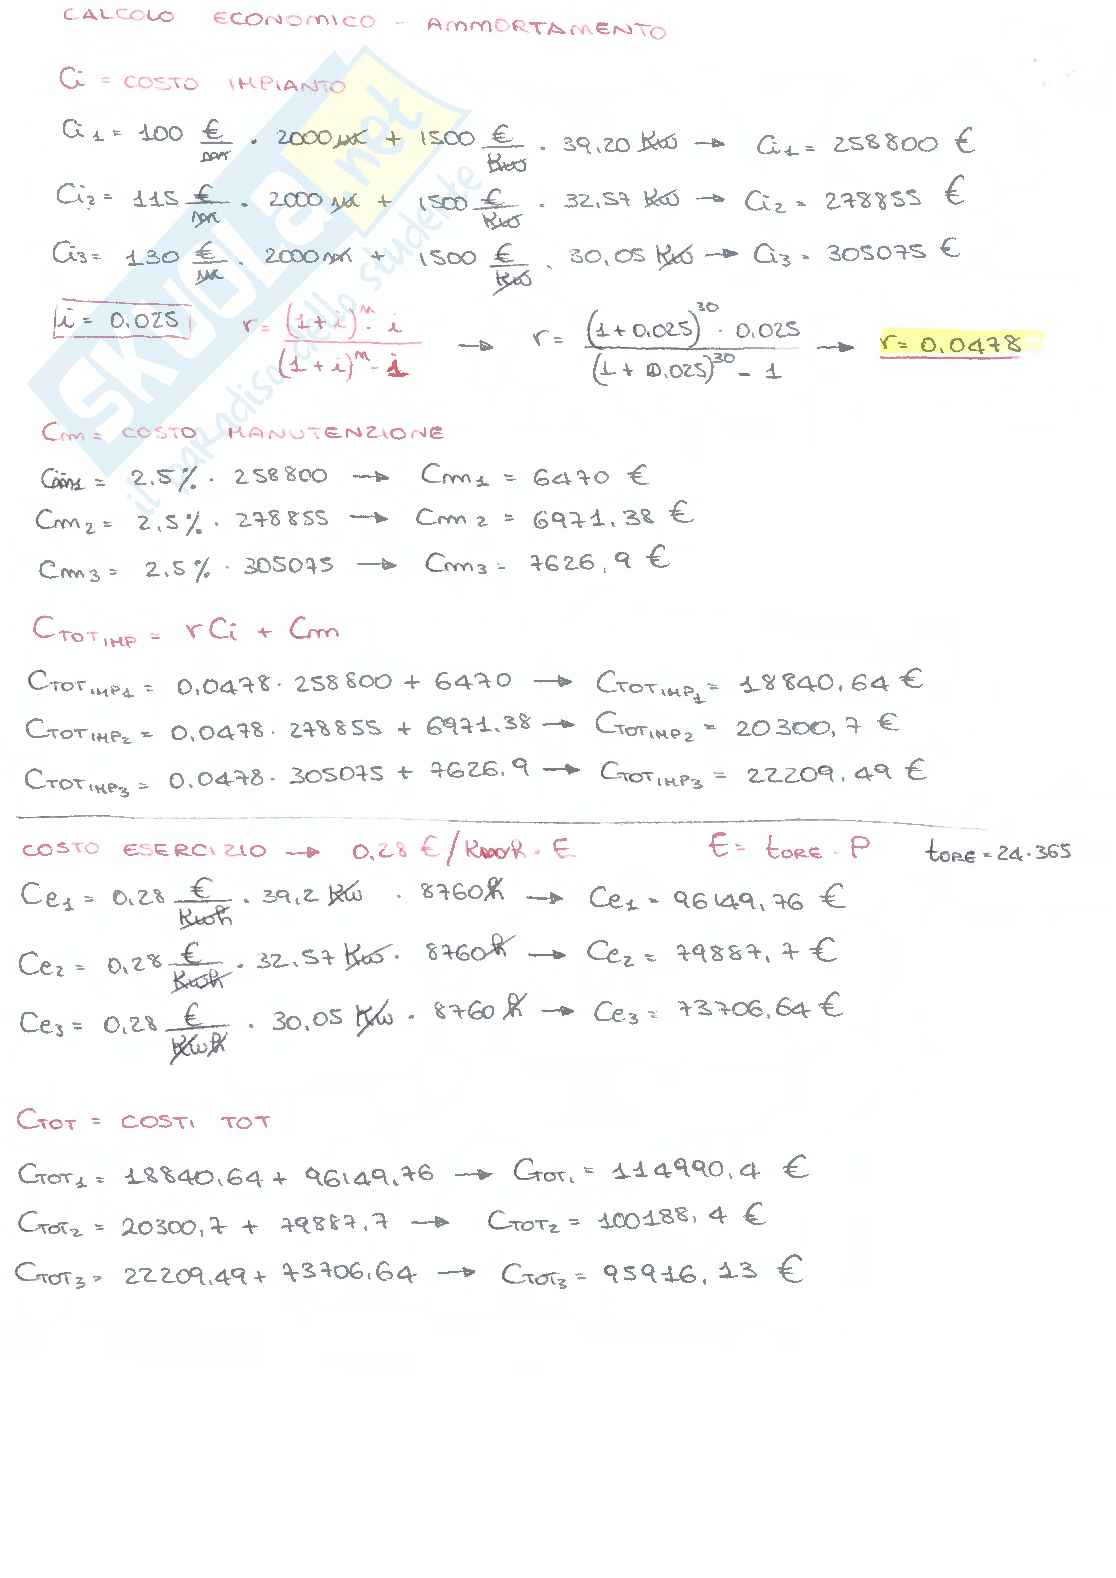 CALCOLO ECONOMICO - AMMORTAMENTO
Ci = COSTO IMPIANTO
Ci1 = 100 €/m · 2000 m + 1500 €/Kw · 39,20 Kw → Ci1 = 258800 €
Ci2 = 115 €/m · 2000 m + 1500 €/Kw · 32,57 Kw → Ci2 = 278855 €
Ci3 = 130 €/m · 2000 m + 1500 €/Kw · 30,05 Kw → Ci3 = 305075 €
i = 0,025 r = (1+i)^n · i / (1+i)^n - 1 → r = (1+0.025)^30 · 0.025 / (1+0.025)^30 - 1 → r = 0,0478
Cm = COSTO MANUTENZIONE
Cm1 = 2.5% · 258800 → Cm1 = 6470 €
Cm2 = 2.5% · 278855 → Cm2 = 6971.38 €
Cm3 = 2.5% · 305075 → Cm3 = 7626,9 €
CTOT IMP = rCi + Cm
CTOT IMP1 = 0,0478 · 258800 + 6470 → CTOT IMP1 = 18840,64 €
CTOT IMP2 = 0,0478 · 278855 + 6971.38 → CTOT IMP2 = 20300,7 €
CTOT IMP3 = 0.0478 · 305075 + 7626,9 → CTOT IMP3 = 22209,49 €
COSTO ESERCIZIO → 0,28 €/Kwh · E E = tORE · P tORE = 24·365
Ce1 = 0,28 €/Kwh · 39,2 Kw · 8760 h → Ce1 = 96149,76 €
Ce2 = 0,28 €/Kwh · 32,57 Kw · 8760 h → Ce2 = 79887,7 €
Ce3 = 0,28 €/Kwh · 30,05 Kw · 8760 h → Ce3 = 73706,64 €
CTOT = COSTI TOT
CTOT1 = 18840,64 + 96149,76 → CTOT1 = 114990,4 €
CTOT2 = 20300,7 + 79887,7 → CTOT2 = 100188,4 €
CTOT3 = 22209,49 + 73706,64 → CTOT3 = 95916,13 €
SKUOLA.net
il paradiso dello studente